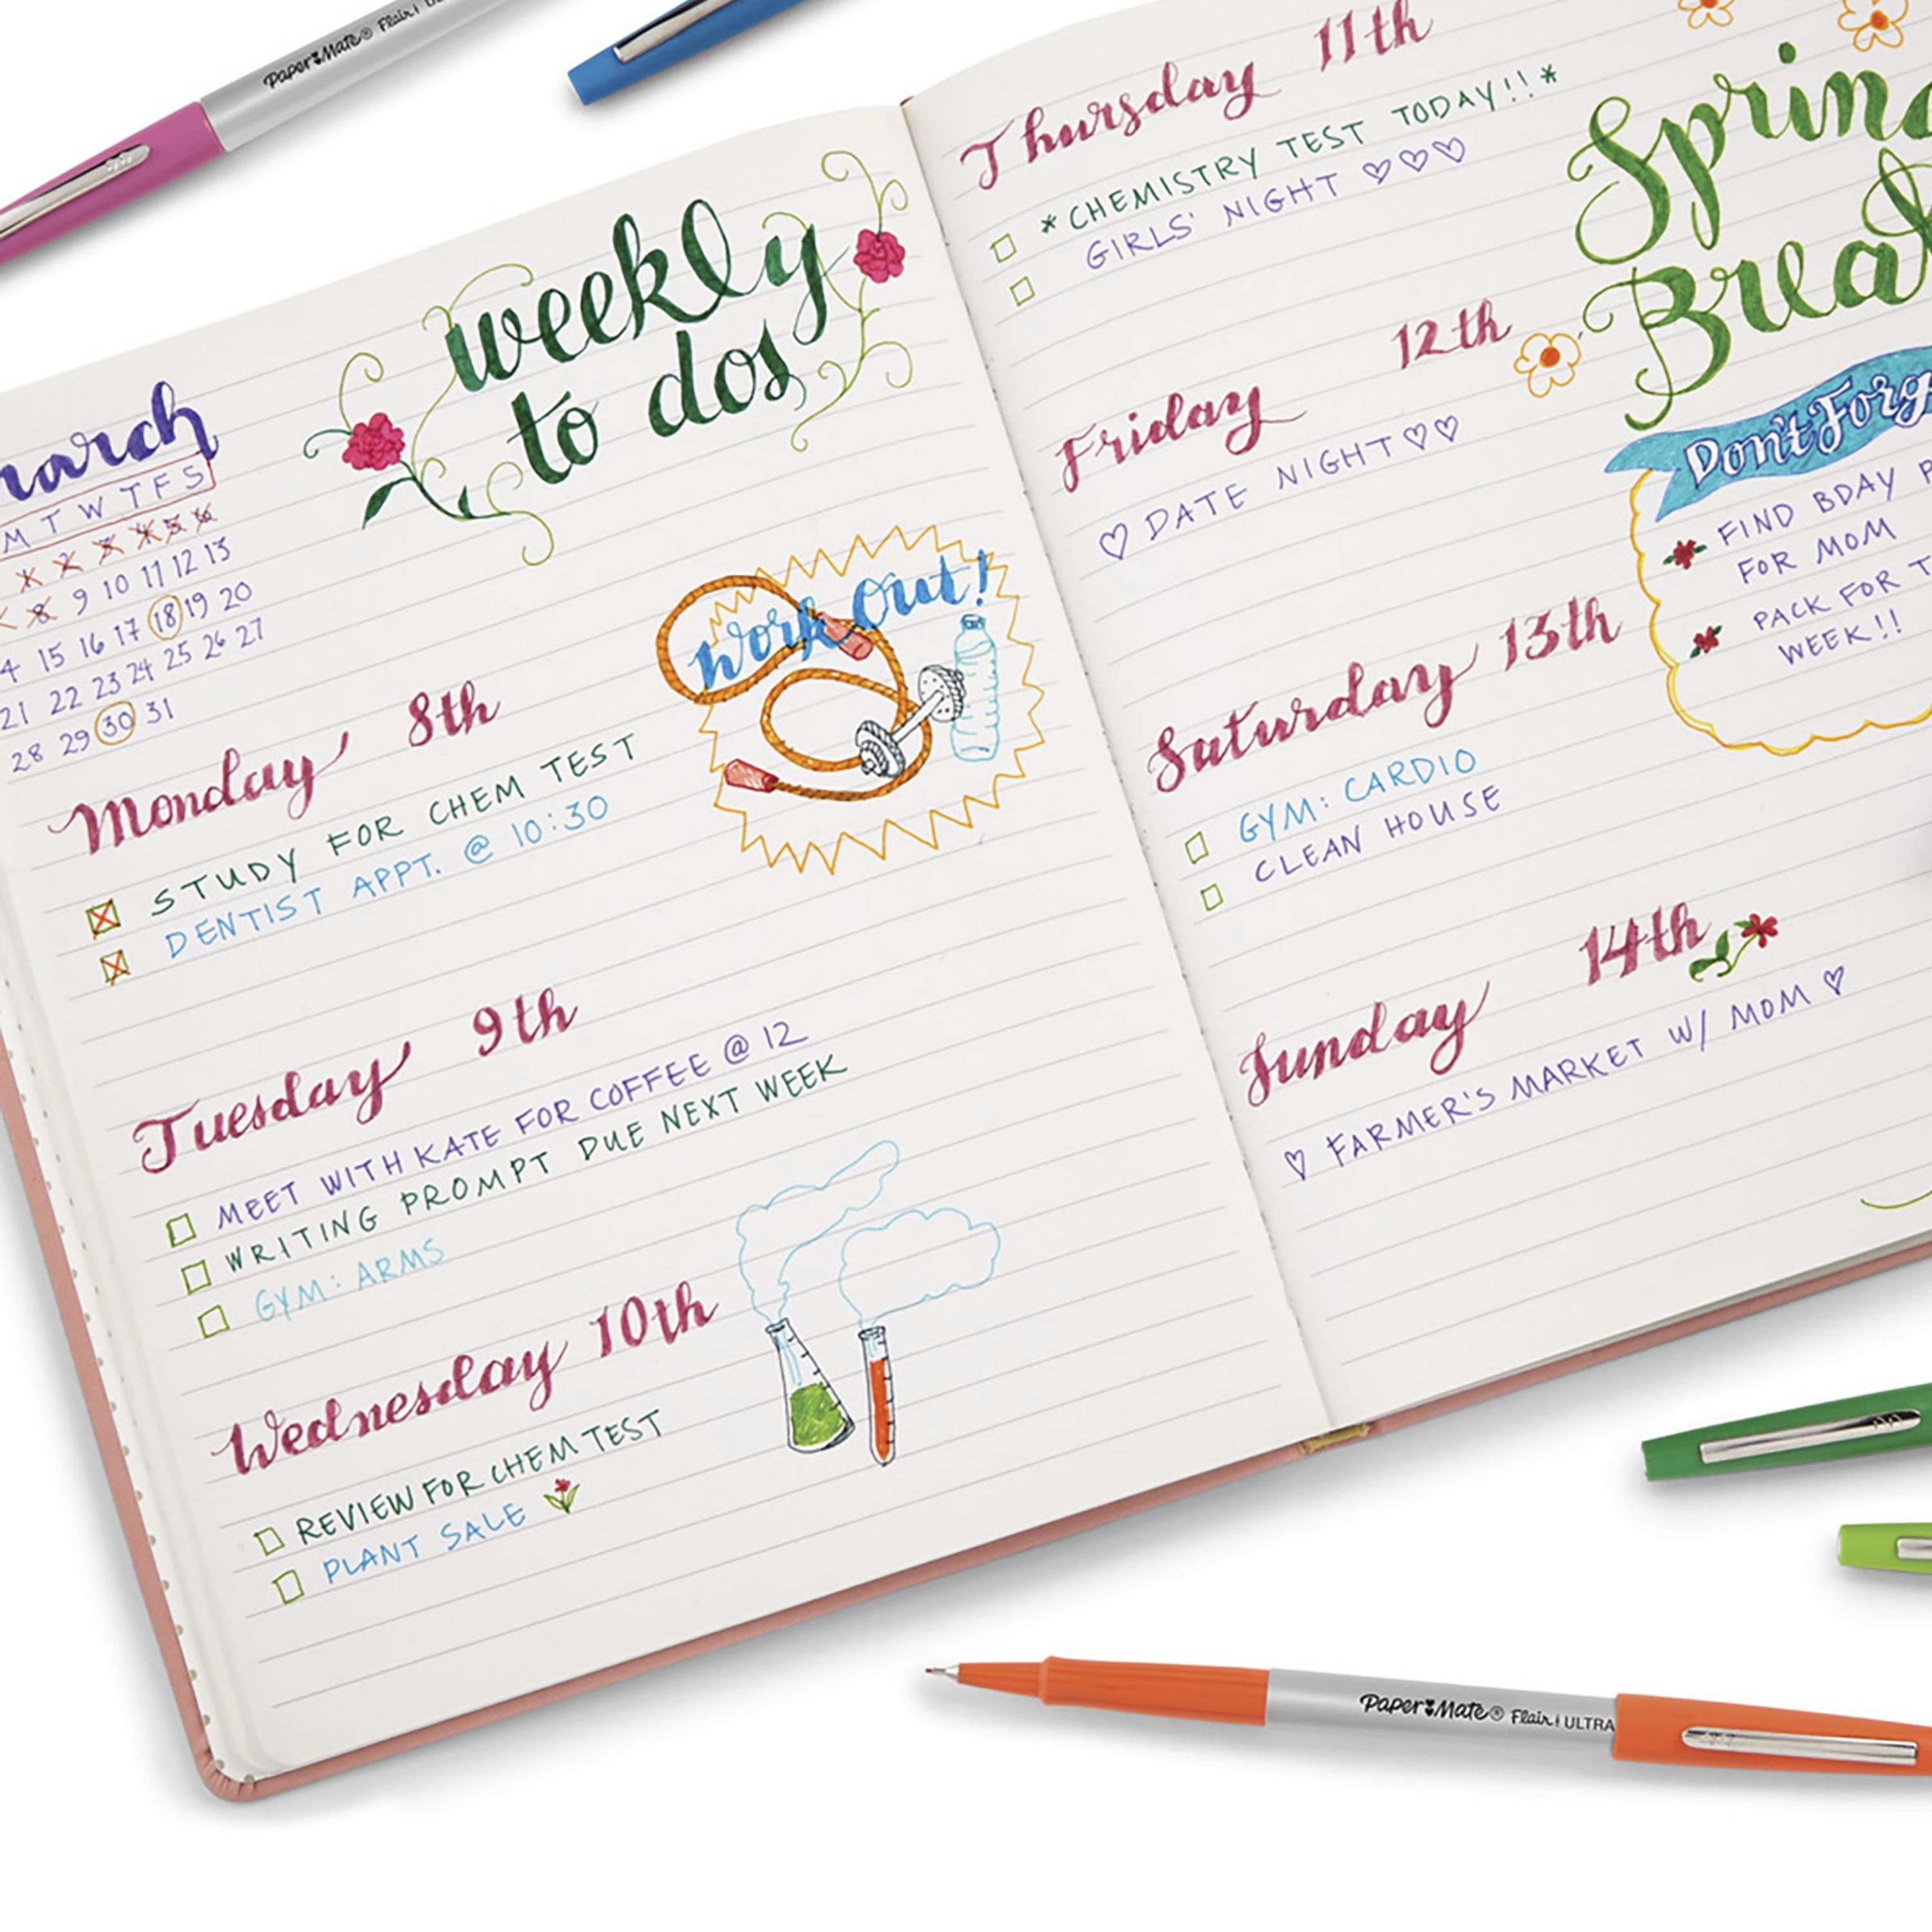 Paper Mate® Flair!
weekly
to dos
M T W T F S
9 10 11 12 13
15 16 17 18 19 20
21 22 23 24 25 26 27
28 29 30 31
work out!
Monday 8th
STUDY FOR CHEM TEST
DENTIST APPT. @ 10:30
Tuesday 9th
MEET WITH KATE FOR COFFEE @ 12
WRITING PROMPT DUE NEXT WEEK
GYM: ARMS
Wednesday 10th
REVIEW FOR CHEM TEST
PLANT SALE
Thursday 11th
*CHEMISTRY TEST TODAY!!*
GIRLS' NIGHT ♡♡♡
Friday 12th
♡ DATE NIGHT ♡♡
Saturday 13th
GYM: CARDIO
CLEAN HOUSE
Sunday 14th
♡ FARMER'S MARKET W/ MOM ♡
Don't
FIND BDAY
FOR MOM
PACK FOR
WEEK!!
Paper Mate® Flair! ULTRA